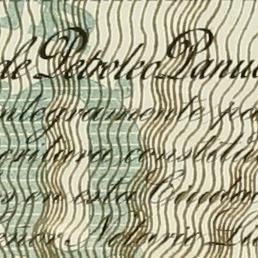 de Petroleo Panuc
integramente pa
critura constitu
en esta Ciudad
Notario